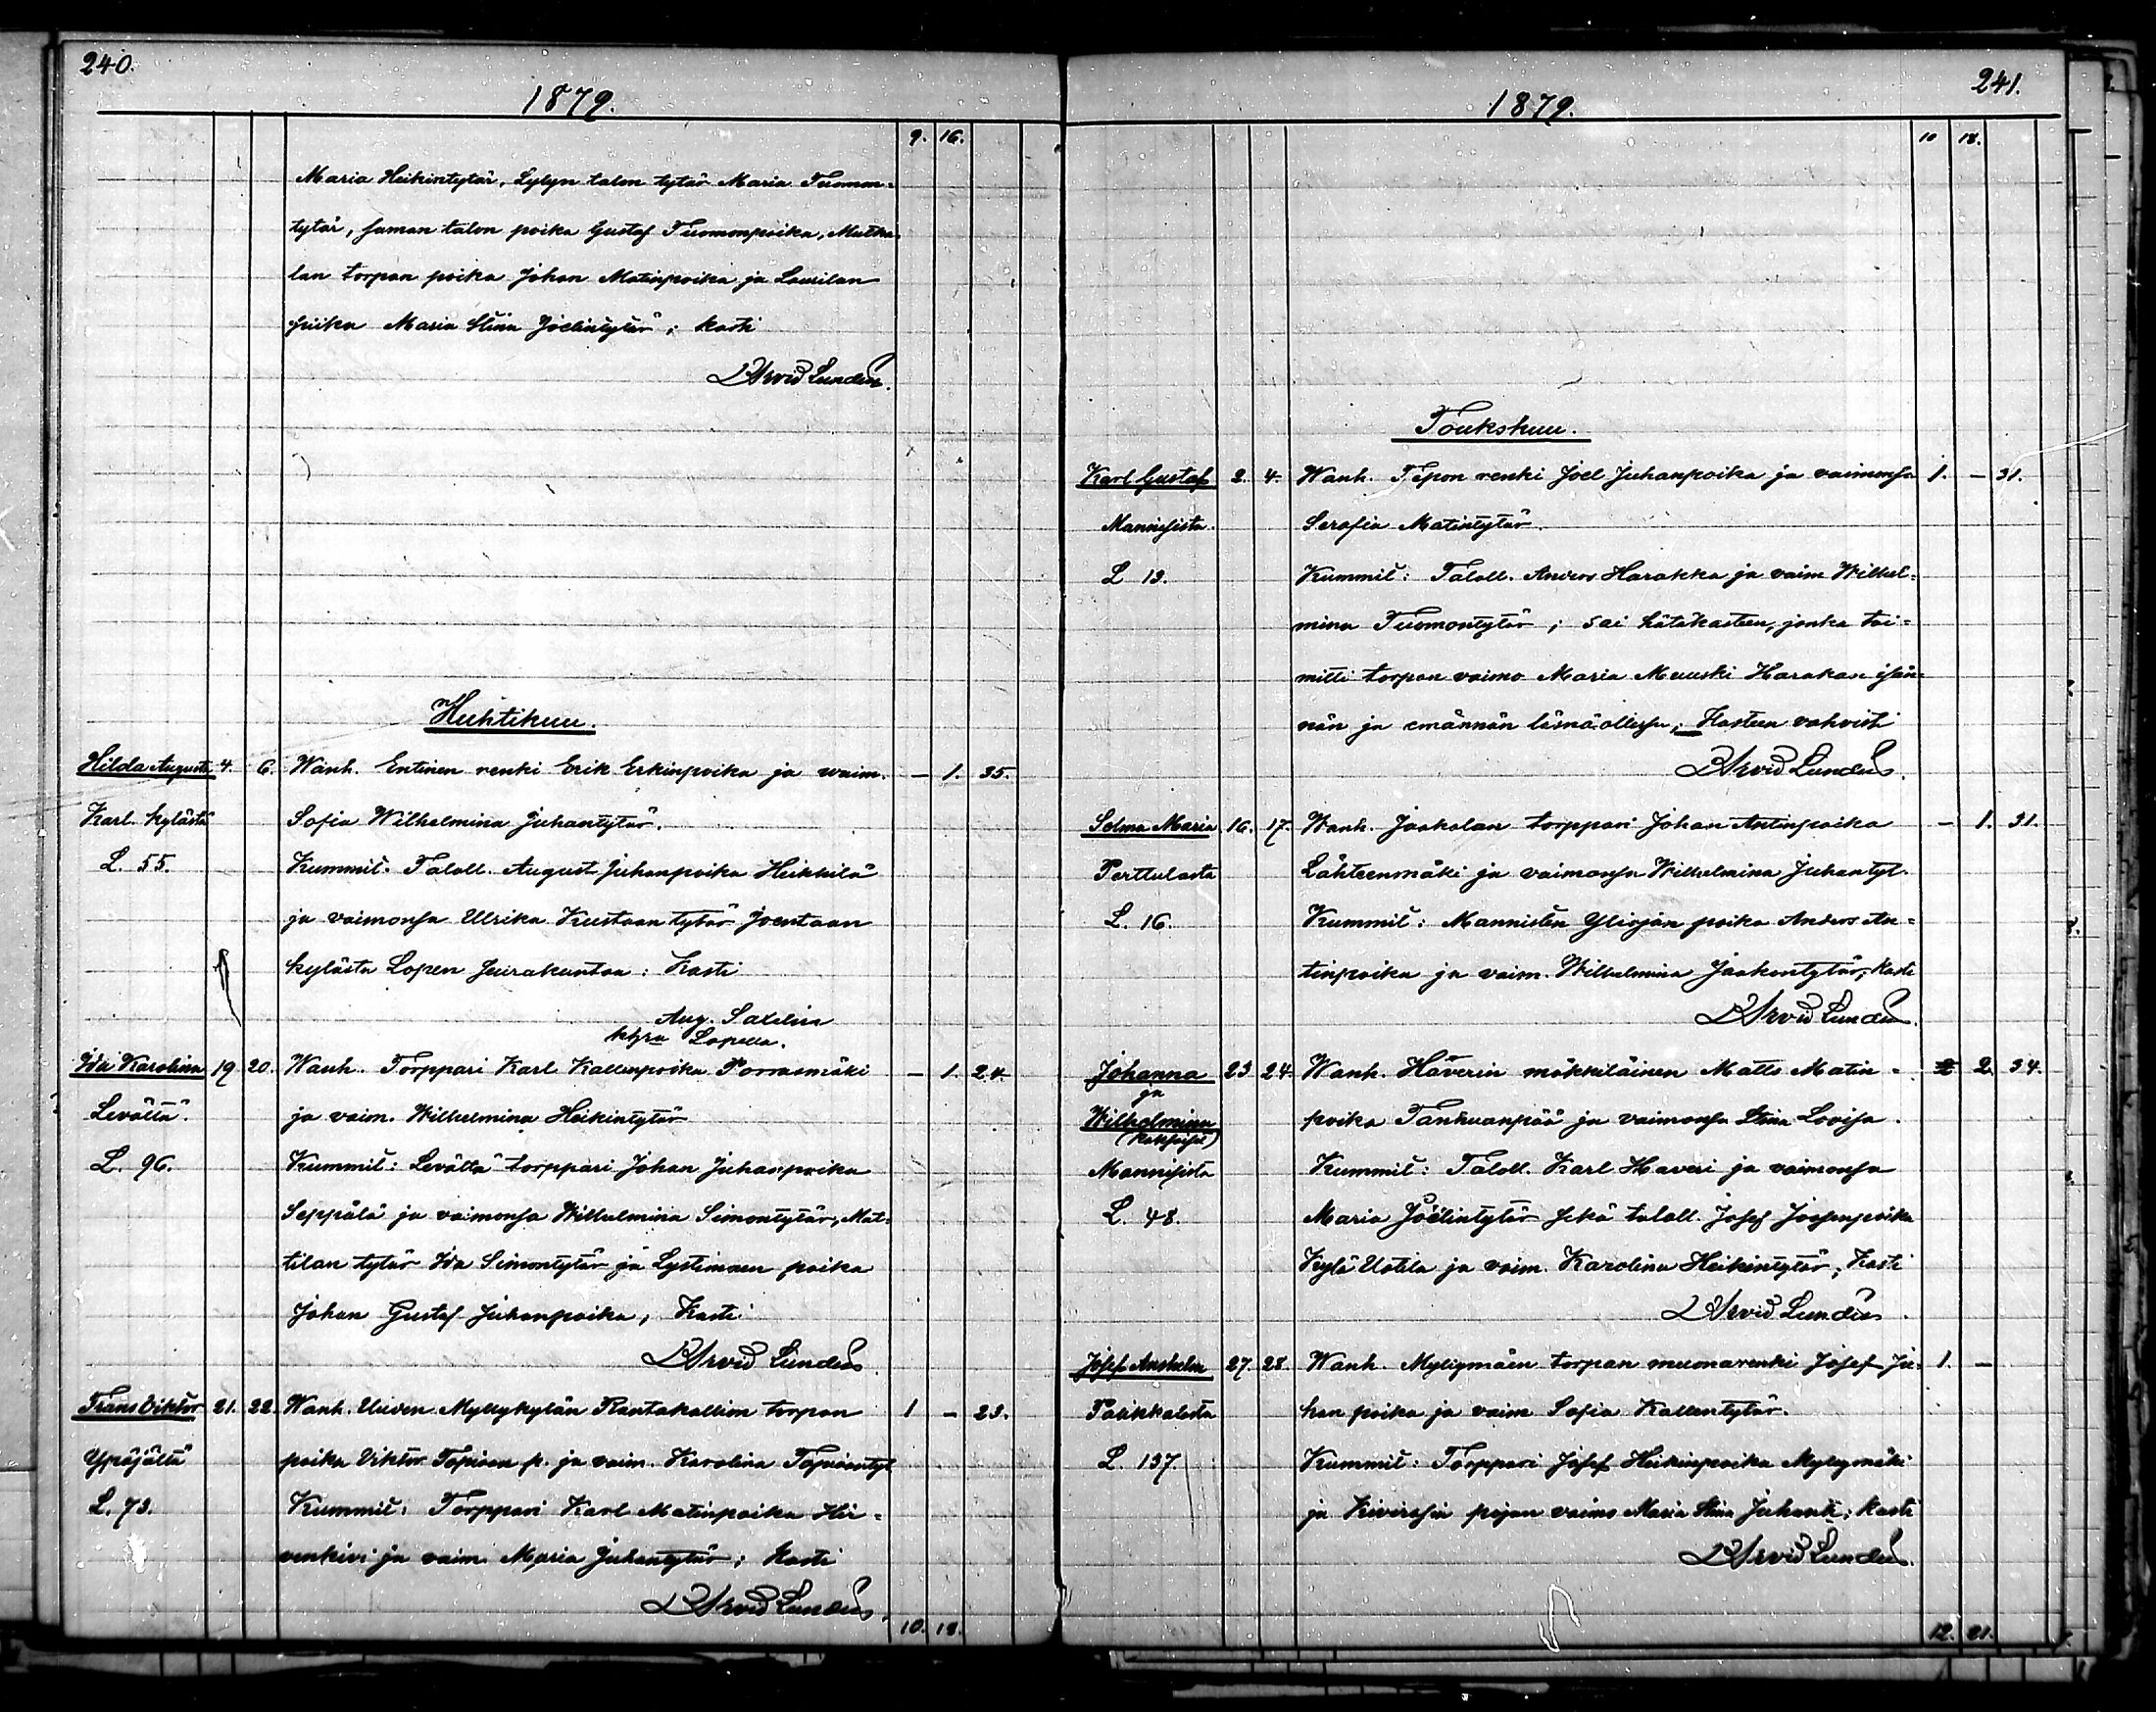 240.
1879.
9. 16.
Maria Heikintytär, Lylyn talon tytär Maria Tuomon-
tytär, saman talon poika Gustaf Tuomonpoika, Mutka-
lan torpan poika Johan Matinpoika ja Laurilan
piika Maria Stiina Joelintytär; kasti
Arvid Lundén.
Huhtikuu.
Hilda Augusta 4. 6. Wanh. Entinen renki Erik Erkinpoika ja waim. — 1. 35.
Karl. kylästä Sofia Wilhelmina Juhantytär.
L. 55. Kummit: Taloll. August Juhanpoika Heikkilä
ja vaimonsa Ulrika Kustaantytär Joentaan
kylästä Lopen seurakuntaa: Kasti
Aug. Saxelin
Lopella.
Ida Karolina 19 20. Wanh. Torppari Karl Kallenpoika Porrasmäki — 1. 24.
Levältä. ja vaim. Wilhelmina Heikintytär
L. 96. Kummit: Levältä torppari Johan Juhanpoika
Seppälä ja vaimonsa Wilhelmina Simontytär, Mat-
tilan tytär Ida Simontytär ja Lystimäen poika
Johan Gustaf Juhanpoika; Kasti
Arvid Lundén
Frans Viktor 21. 22. Wanh. Uuden Myllykylän Rautakallion torpan 1 — 23.
Ypäjältä poika Viktor Tapioon p. ja vaim. Karolina Tapioontyt
L. 73. Kummit: Torppari Karl Matinpoika Hir-
venkivi ja vaim. Maria Juhantytär; Kasti
Arvid Lundén.
10. 18.
241.
1879.
10 18.
Toukokuu.
Karl Gustaf 2. 4. Wanh. Tepon renki Joel Juhanpoika ja vaimonsa 1. — 31.
Mannisista. Serafia Matintytär.
L 13. Kummit: Taloll. Anders Harakka ja vaim Wilhel-
mina Tuomontytär; sai hätäkasteen, jonka toi-
mitti torpan vaimo Maria Muuski Harakan isän-
nän ja emännän läsnäollessa; Kasteen vahvisti
Arvid Lundén.
Selma Maria 16. 17. Wanh. Jaakolan torppari Johan Antinpoika — 1. 31.
Perttulasta Lähteenmäki ja vaimonsa Wilhelmina Juhantyt.
L. 16. Kummit: Mannisten Yliojan poika Anders An-
tinpoika ja vaim. Wilhelmina Jaakontytär; Kasti
Arvid Lundén.
Johanna 23 24. Wanh. Häverin mökkiläinen Matts Matin- 2. 34.
ja
Wilhelmina poika Tanhuanpää ja vaimonsa Stina Lovisa.
(kaksoiset)
Mannisista Kummit: Taloll. Karl Haveri ja vaimonsa
L. 48. Maria Joelintytär sekä taloll. Josef Joosenpoika
Kylä Uotila ja vaim. Karolina Heikintytär; Kasti
Arvid Lundén.
Josef Anshelm 27. 28. Wanh. Myllymäen torpan muonarenki Josef Ju- 1. —
Palikkalasta hanpoika ja vaim Sofia Kallentytär.
L. 137. Kummit: Torppari Josef Heikinpoika Myllymäki
ja Kivirasin pojan vaimo Maria Stiina Juhant.; kasti
Arvid Lundén.
12. 21.